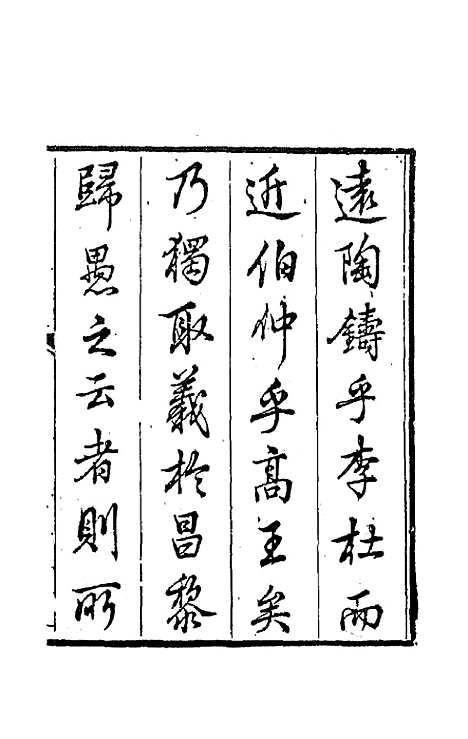 遠陶鑄乎李杜而
近伯仲乎高王矣
乃獨取義於昌黎
歸愚之云者則所